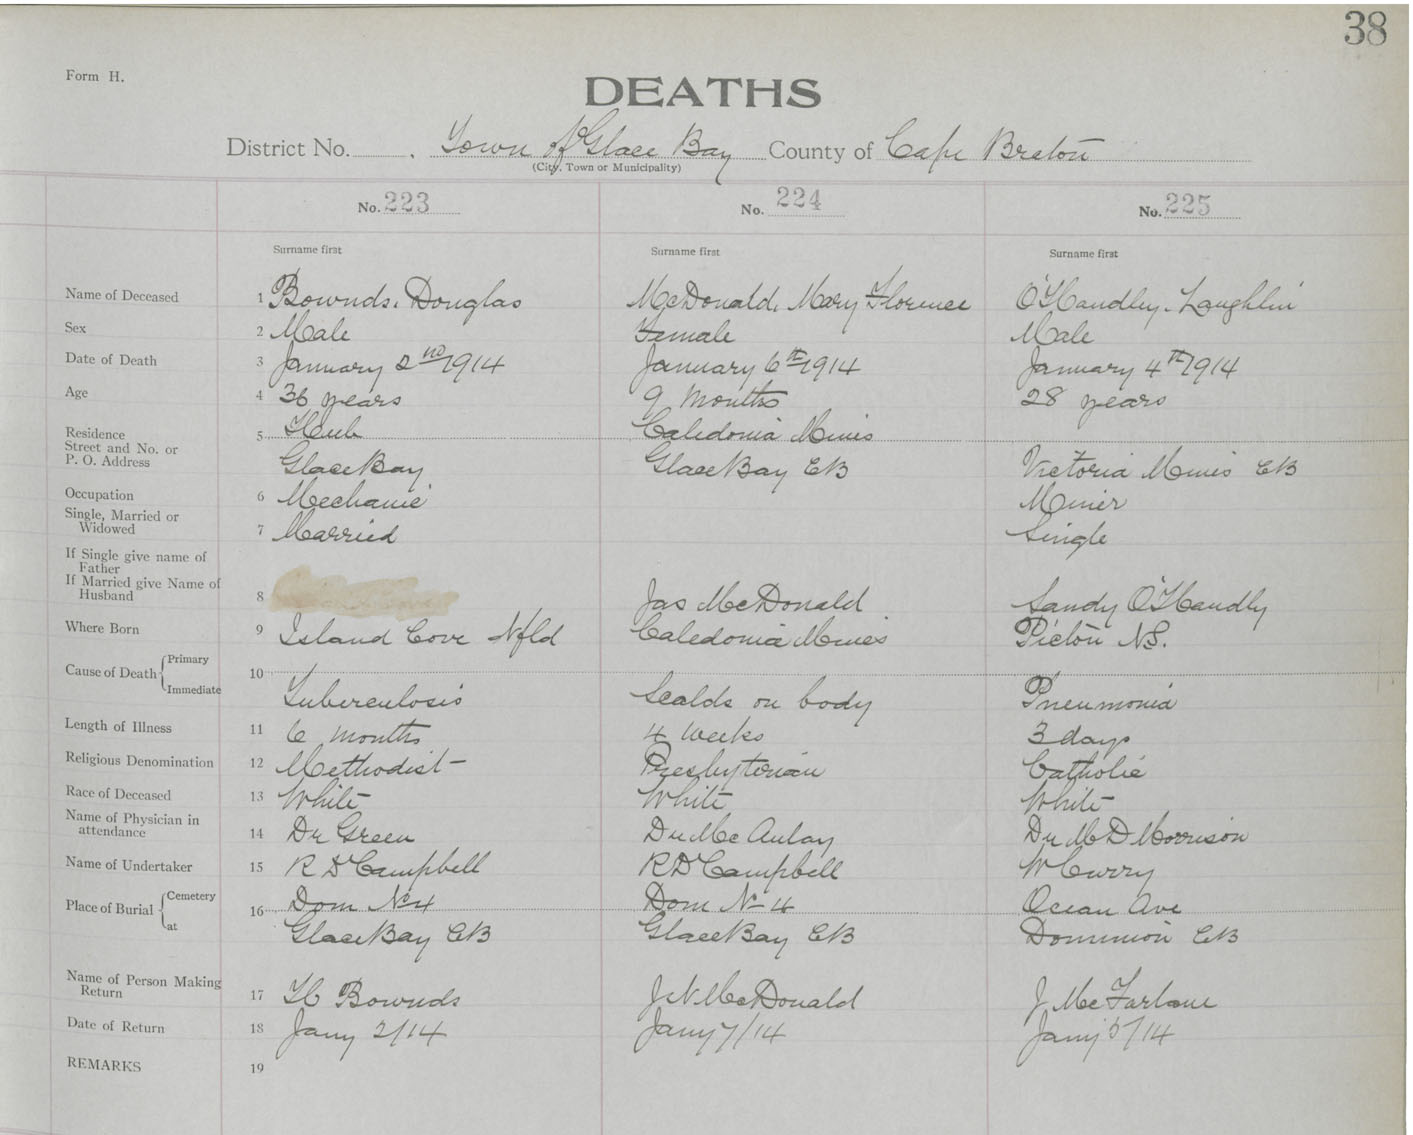 38
Form H.
DEATHS
District No. . Town of Glace Bay County of Cape Breton
(City, Town or Municipality)
No. 223 No. 224 No. 225
Surname first Surname first Surname first
Name of Deceased 1 Bownds, Douglas McDonald, Mary Florence O'Handley, Laughlin
Sex 2 Male Female Male
Date of Death 3 January 2nd 1914 January 6th 1914 January 4th 1914
Age 4 36 years 9 months 28 years
Residence 5 Hub Caledonia Mines
Street and No. or
P. O. Address Glace Bay Glace Bay CB Victoria Mines CB
Occupation 6 Mechanic Miner
Single, Married or
Widowed 7 Married Single
If Single give name of
Father
If Married give Name of
Husband 8 Jas McDonald Sandy O'Handly
Where Born 9 Island Cove Nfld Caledonia Mines Pictou N.S.
Cause of Death { Primary 10
Immediate Tuberculosis Scalds on body Pneumonia
Length of Illness 11 6 months 4 weeks 3 days
Religious Denomination 12 Methodist Presbyterian Catholic
Race of Deceased 13 White White White
Name of Physician in
attendance 14 Dr Green Dr McAulay Dr M D Morrison
Name of Undertaker 15 R D Campbell R D Campbell W Curry
Place of Burial { Cemetery 16 Dom No 4 Dom No 4 Ocean Ave
at Glace Bay CB Glace Bay CB Dominion CB
Name of Person Making
Return 17 H Bownds J N McDonald J McFarlane
Date of Return 18 Jany 2/14 Jany 7/14 Jany 5/14
REMARKS 19